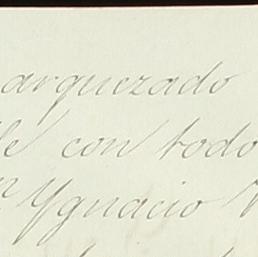 arquezado
con todo
Ygnacio